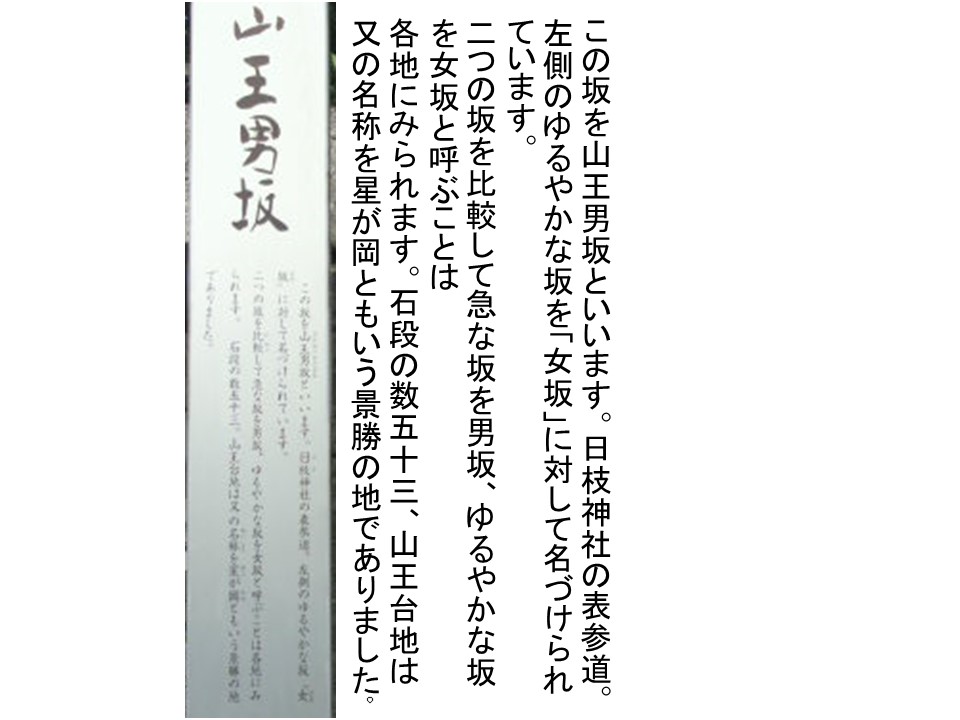 この坂を山王男坂といいます。日枝神社の表参道。
左側のゆるやかな坂を「女坂」に対して名づけられ
ています。
二つの坂を比較して急な坂を男坂、ゆるやかな坂
を女坂と呼ぶことは
各地にみられます。石段の数五十三、山王台地は
又の名称を星が岡ともいう景勝の地でありました。
山王男坂
この坂を山王男坂といいます。日枝神社の表参道。左側のゆるやかな坂「女
坂」に対して名づけられています。
二つの坂を比較して急な坂を男坂、ゆるやかな坂を女坂と呼ぶことは各地にみ
られます。 石段の数五十三。山王台地は又の名称を星が岡ともいう景勝の地
でありました。